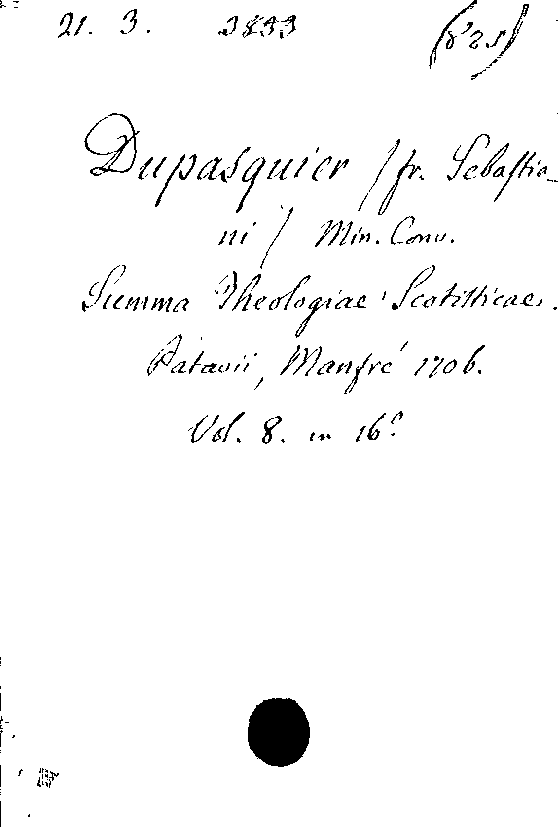 21. 3. 3833 (825)
Dupasquier / fr. Sebastia-
ni / Min. Conv.
Summa Theologiae Scotisticae.
Patavii, Manfré 1706.
Vol. 8. in 16º